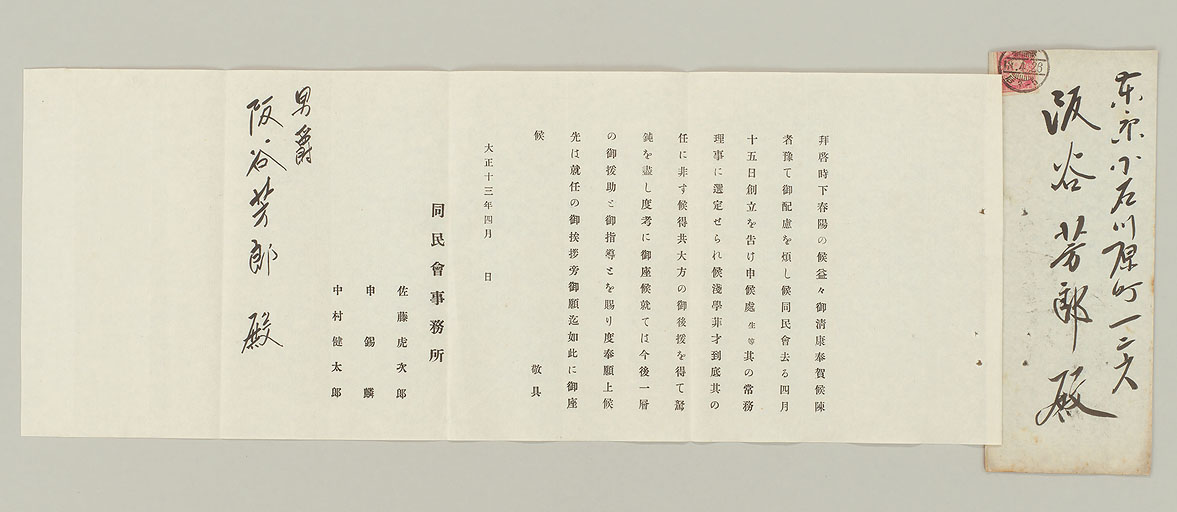 東京小石川原町一二六
阪谷芳郎殿
拜啓時下春陽の候益々御清康奉賀候陳
者豫て御配慮を煩し候同民會去る四月
十五日創立を告け申候處生等其の常務
理事に選定せられ候淺學菲才到底其の
任に非す候得共大方の御後援を得て駑
鈍を盡し度考に御座候就ては今後一層
の御援助と御指導とを賜り度奉願上候
先は就任の御挨拶旁御願迄如此に御座
候　敬具
大正十三年四月　日
同民會事務所
佐藤虎次郎
申錫麟
中村健太郎
男爵
阪谷芳郎殿